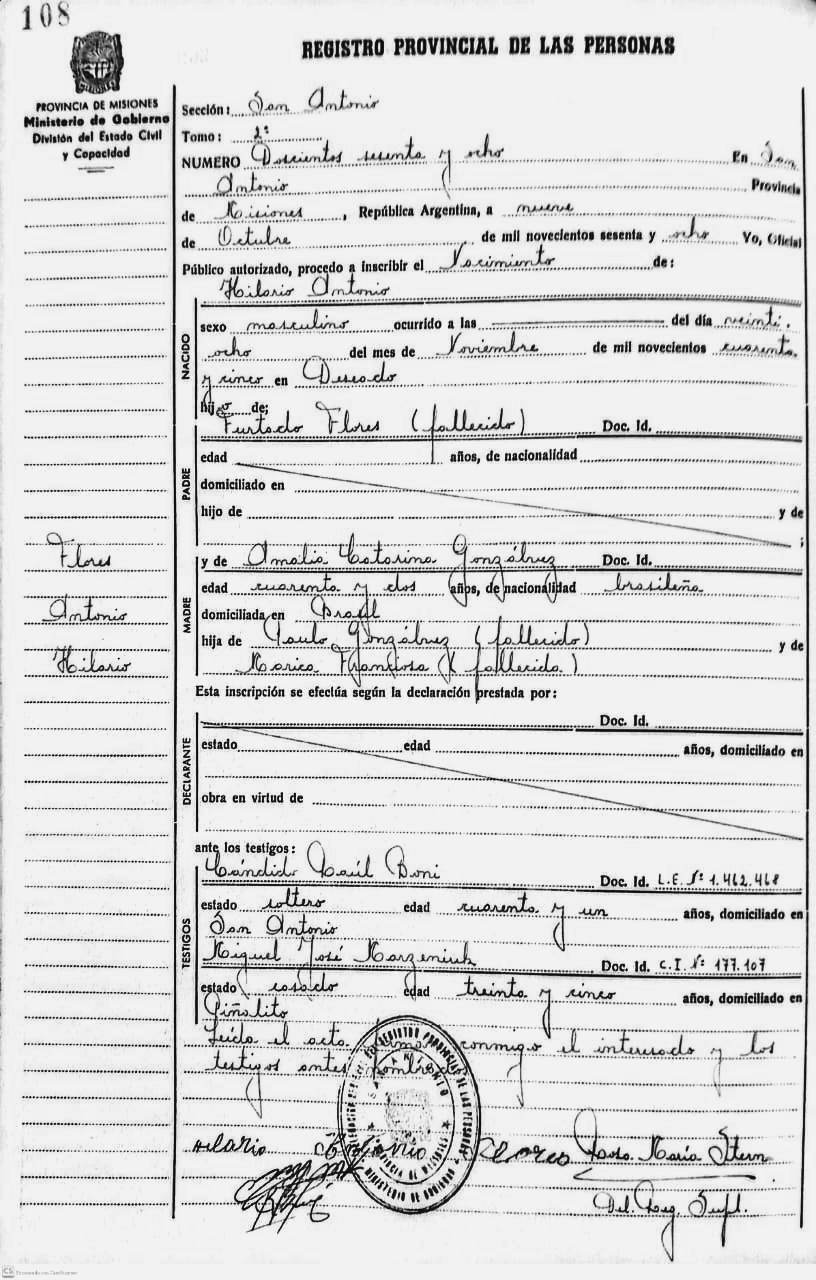 108
REGISTRO PROVINCIAL DE LAS PERSONAS
PROVINCIA DE MISIONES
Ministerio de Gobierno
División del Estado Civil
y Capacidad
Sección: San Antonio
Tomo: 2º
NUMERO Doscientos sesenta y ocho En San
Antonio Provincia
de Misiones, República Argentina, a nueve
de Octubre de mil novecientos sesenta y ocho Yo, Oficial
Público autorizado, procedo a inscribir el Nacimiento de:
Hilario Antonio
NACIDO
sexo masculino ocurrido a las del día veinti.
ocho del mes de Noviembre de mil novecientos cuarenta
y cinco en Deseado
hijo de:
Furtado Flores (fallecido) Doc. Id.
PADRE
edad años, de nacionalidad
domiciliado en
hijo de y de
;
Flores
Antonio
Hilario
y de Amalia Catarina Gonzálvez Doc. Id.
MADRE
edad cuarenta y dos años, de nacionalidad brasileña
domiciliada en Brasil
hija de Paulo Gonzálvez (fallecido) y de
Marica Francisa (fallecida)
Esta inscripción se efectúa según la declaración prestada por:
Doc. Id.
DECLARANTE
estado edad años, domiciliado en
obra en virtud de
ante los testigos:
Cándido Raúl Boni Doc. Id. L.E. Nº 1.462.468
TESTIGOS
estado soltero edad cuarenta y un años, domiciliado en
San Antonio
Miguel José Marzeniuk Doc. Id. C.I. Nº 177.107
estado casado edad treinta y cinco años, domiciliado en
Piñalito
Leída el acta conmigo el interesado y los
testigos antes
REGISTRO PROVINCIAL DE LAS PERSONAS
SAN ANTONIO
PROVINCIA DE MISIONES
MINISTERIO DE GOBIERNO
Hilario Antonio Flores María Stern
Del. Reg. Supl.
CS